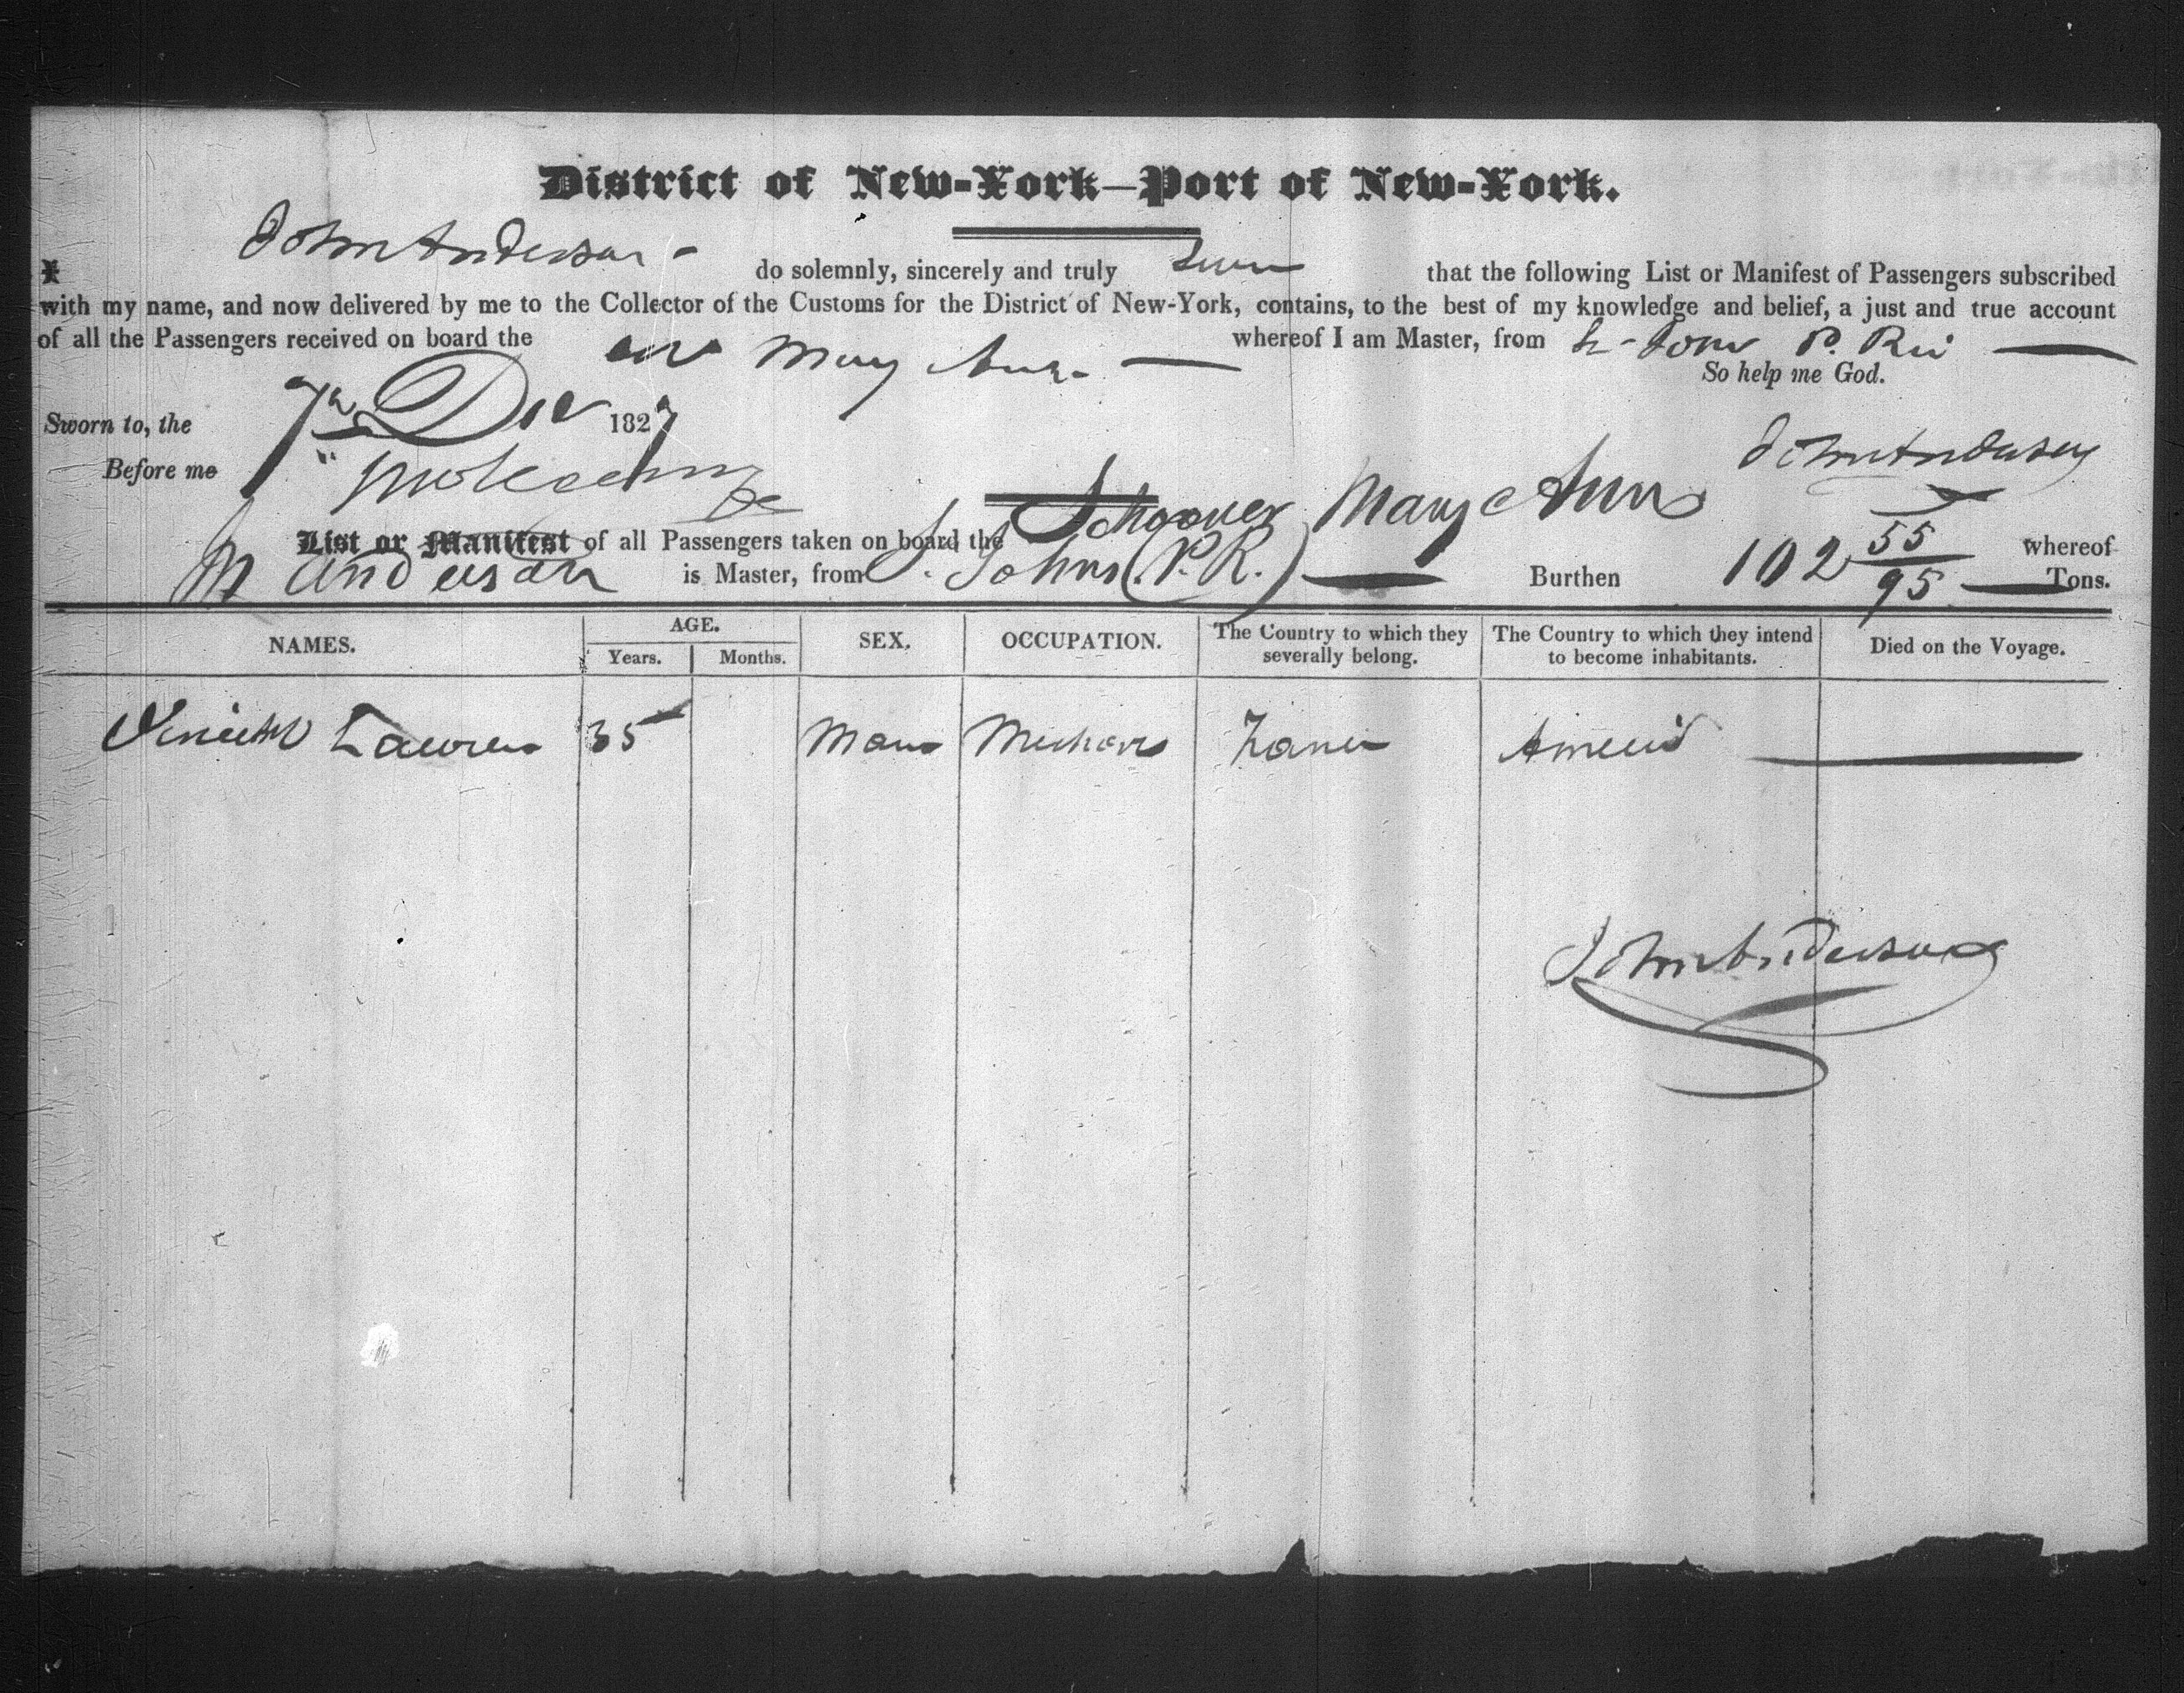 District of New-York—Port of New-York.
I John Anderson do solemnly, sincerely and truly swear that the following List or Manifest of Passengers subscribed
with my name, and now delivered by me to the Collector of the Customs for the District of New-York, contains, to the best of my knowledge and belief, a just and true account
of all the Passengers received on board the Mary Ann whereof I am Master, from St Johns P. Rico
So help me God.
Sworn to, the 7th Dec 1827
Before me
John Anderson
List or Manifest of all Passengers taken on board the Schooner Mary Ann whereof
M Anderson is Master, from St. Johns (P.R.) Burthen 102 55/95 Tons.
NAMES. AGE. Years. Months. SEX. OCCUPATION. The Country to which they severally belong. The Country to which they intend to become inhabitants. Died on the Voyage.
35 Man
John Anderson